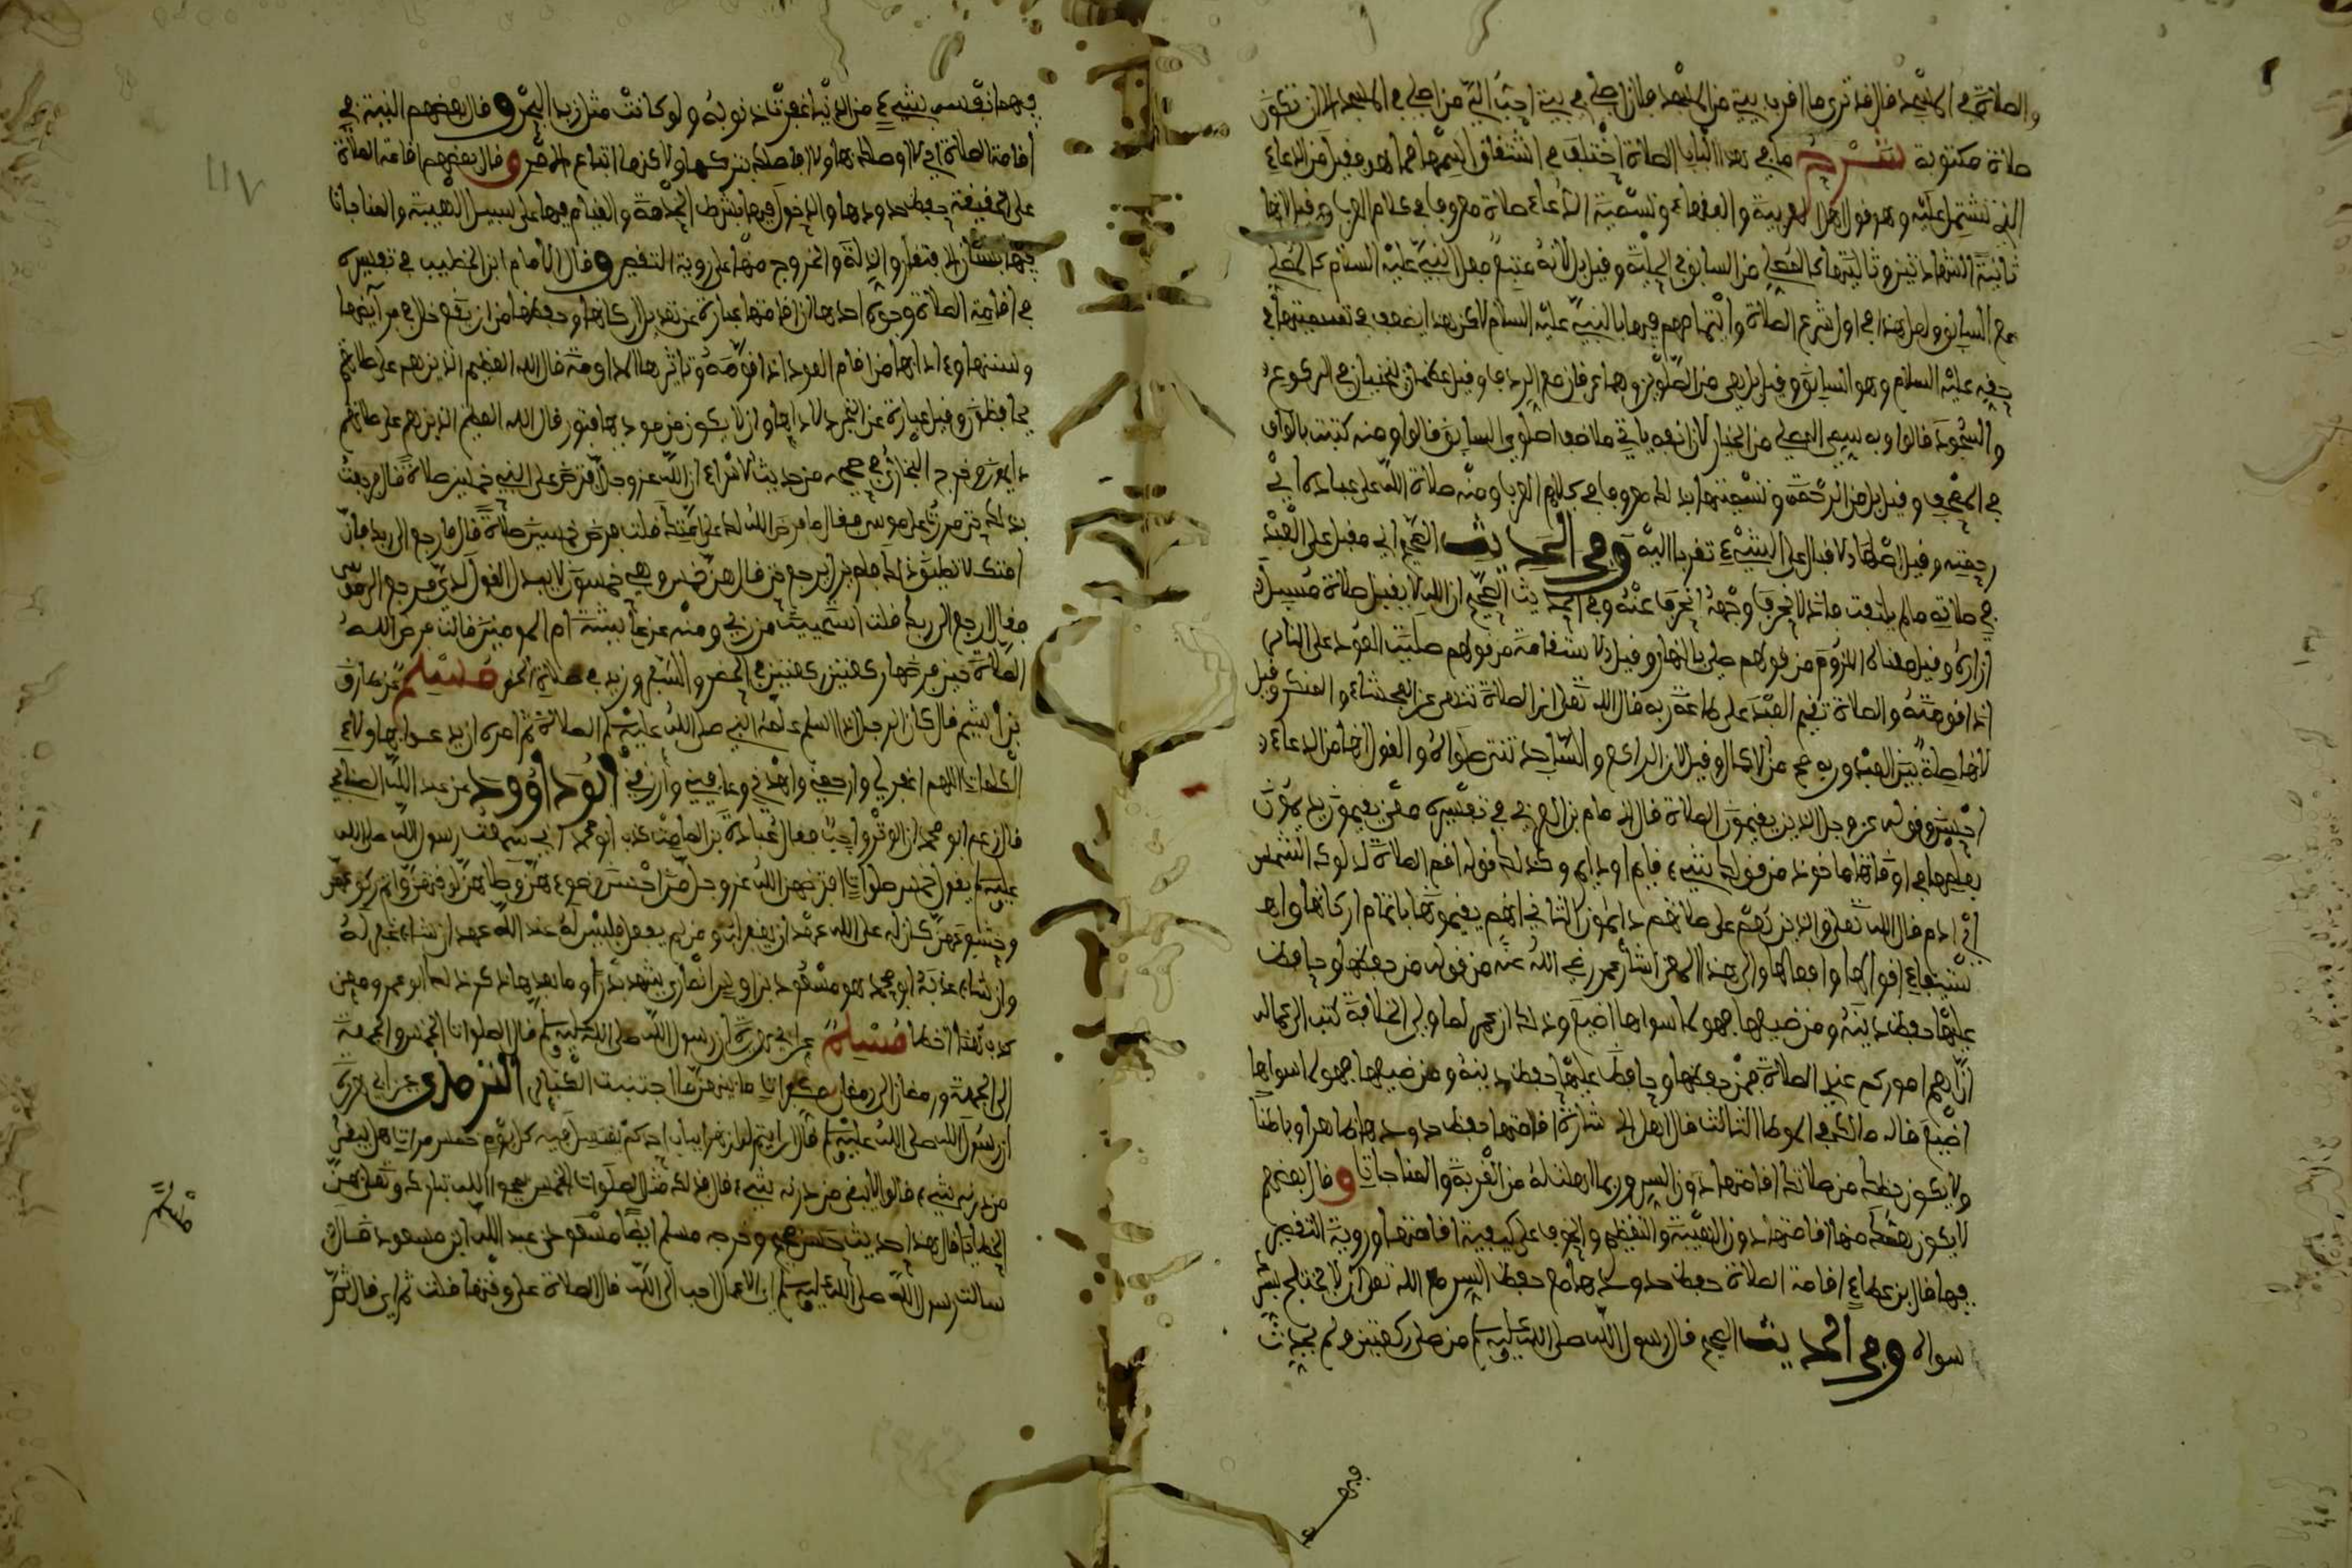 والصلاة في المسجد قال قد ترى ما اقرب بيتي من المسجد فلان اصلي في بيتي احب الي من اصلي في المسجد الا ان تكون
صلاة مكتوبة شرح ما في هذا الباب الصلاة اختلف في اشتقاق اسمها مما هو فقيل من الدعاء
الذي تشتمل عليه وهو قول اهل العربية والفقهاء وتسمية الدعاء صلاة معروف في كلام العرب وقيل لانها
ثانية الشهادتين وتاليتهما كالمصلي من السابق في الحلبة وقيل بل لانه متبع فعل النبي عليه السلام كالمصلي
مع السابق ولعل هذا في اول شرع الصلاة وائتمامهم فيها بالنبي عليه السلام لكن هذا يضعف في تسميتها في
حقه عليه السلام وهو السابق وقيل بل هي من الصلوين وهما عرفان مع الردف وقيل عظمان ينحنيان في الركوع و
والسجود قالوا وبه سمي المصلي من الخيل لان انفه ياتي ملاصقا صلوي السابق قالوا ومنه كتبت بالواو
في المصحف وقيل بل من الرحمة وتسميتها بذلك معروف في كلام العرب ومنه صلاة الله على عباده اي
رحمته وقيل اصلها الاقبال على الشيء تقربا اليه وفي الحديث الصحيح اني مقبل على العبد
في صلاته ما لم يلتفت فاذا انحرف وجهه انحرف عنه وفي الحديث الصحيح ان الله لا يقبل صلاة مسبل
ازاره وقيل معناه اللزوم من قولهم صلي بالنار وقيل الاستقامة من قولهم صليت العود على النار
اذا قومته والصلاة تقيم العبد على طاعة ربه قال الله تعلى ان الصلاة تنهى عن الفحشاء والمنكر وقيل
لانها صلة بين العبد وربه
احسن وقوله عز وجل الذين يقيمون الصلاة قال الامام بن العربي في تفسيره معنى يقيمون يديمون
فعلها في اوقاتها ماخوذ من قولك شيء قايم اي دايم وكذلك قوله اقم الصلاة لدلوك الشمس
اي ادم قال الله تعلى والذين هم على صلاتهم دايمون الثاني انهم يقيمونها باتمام اركانها و
استيفاء اقوالها وافعالها والى هذا المعنى اشار عمر رضي الله عنه من قوله من حفظها وحافظ
عليها حفظ دينه ومن ضيعها فهو لما سواها اضيع وذلك ان عمر لما ولي الخلافة كتب الى عماله
ان اهم اموركم عندي الصلاة فمن حفظها وحافظ عليها حفظ دينه ومن ضيعها فهو لما سواها
اضيع قاله مالك في الموطا الثالث قال اهل الاشارة اقامتها حفظ حدودها ظاهرا وباطنا
ولا يكون حظك من صلاتك اقامتها دون السر وربما اهلت له من القربة والمناجات وقال بعضهم
لا يكون همك منها اقامتها دون الهيبة والتعظيم والخوف على كيفية اقامتها ورؤية التقصير
فيها قال بن عطاء اقامة الصلاة حفظ حدودها مع حفظ السر مع الله تعلى ان لا يختلج بسر
سواه وفي الحديث الصحيح قال رسول الله صلى الله عليه وسلم من صلى ركعتين ولم يحدث
فيهما نفسه بشيء من الدنيا غفرت ذنوبه ولو كانت مثل زبد البحر وقال بعضهم النية في
اقامة الصلاة اي لا اوصلك بها ولا اقاطعك بتركها ولكنها اتباع الامر وقال بعضهم اقامة الصلاة
على الحقيقة حفظ حدودها والدخول فيها بشرط الخدمة والقيام فيها على سبيل الهيبة والمناجات
فيها بلسان الافتقار والذلة والخروج منها على رؤية التقصير وقال الامام ابن الخطيب في تفسيره
في اقامة الصلاة وجوه احدها ان اقامتها عبارة عن تعديل اركانها وحفظها من ان يقع خلل في فرايضها
وسننها وءادابها من اقام العود اذا قومه وثانيها المداومة قال الله العظيم الذين هم على صلاتهم
يحافظون وقيل عبارة عن التجرد لادائها وان لا يكون من موديها فتور قال الله العظيم الذين هم على صلاتهم
دايمون خرج البخاري في صحيحه من حديث الاسراء ان الله عز وجل فرض على النبي خمسين صلاة قال فرجعت
بذلك حتى مررت على موسى فقال ما فرض الله لك على امتك قلت فرض خمسين صلاة قال فارجع الى ربك فان
امتك لا تطيق ذلك فلم يزل يرجع حتى قال هن خمس وهي خمسون لا يبدل القول لدي فرجع الى موسى
فقال ارجع الى ربك قلت استحييت من ربي ومنه عن عايشة ام المومنين قالت فرض الله
الصلاة حين فرضها ركعتين ركعتين في الحضر والسفر وزيد في صلاة الحضر مسلم عن طارق
بن اشيم قال كان الرجل اذا اسلم علمه النبي صلى الله عليه وسلم الصلاة ثم امره ان يدعو بهاولاء
الكلمات اللهم اغفر لي وارحمني واهدني وعافيني وارزقني ابو داوود عن عبد الله الصنابحي
قال زعم ابو محمد ان الوتر واجب فقال عبادة بن الصامت كذب ابو محمد اني سمعت رسول الله صلى الله
عليه وسلم يقول خمس صلوات افترضهن الله عز وجل من احسن وضوءهن وصلاهن لوقتهن واتم ركوعهن
وخشوعهن كان له على الله عهد ان يغفر له ومن لم يفعل فليس له عند الله عهد ان شاء غفر له
وان شاء عذبه ابو محمد هو مسعود بن اوس انصاري شهد بدرا وما بعدها ذكر ذلك ابو عمر ومعنى
كذب هنا اخطا مسلم عن ابي هريرة ان رسول الله صلى الله عليه وسلم قال الصلوات الخمس والجمعة
الى الجمعة ورمضان الى رمضان مكفرات ما بينهن ما اجتنبت الكبائر الترمذي عن ابي هريرة
ان رسول الله صلى الله عليه وسلم قال ارايتم لو ان نهرا بباب احدكم يغتسل فيه كل يوم خمس مرات هل يبقى
من درنه شيء قالوا لا يبقى من درنه شيء قال فذلك مثل الصلوات الخمس يمحوا الله تبارك وتعلى بهن
الخطايا قال هذا حديث حسن صحيح وخرجه مسلم ايضا مسعود عن عبد الله ابن مسعود قال
سالت رسول الله صلى الله عليه وسلم اي الاعمال احب الى الله قال الصلاة على وقتها قلت ثم اي قال ثم